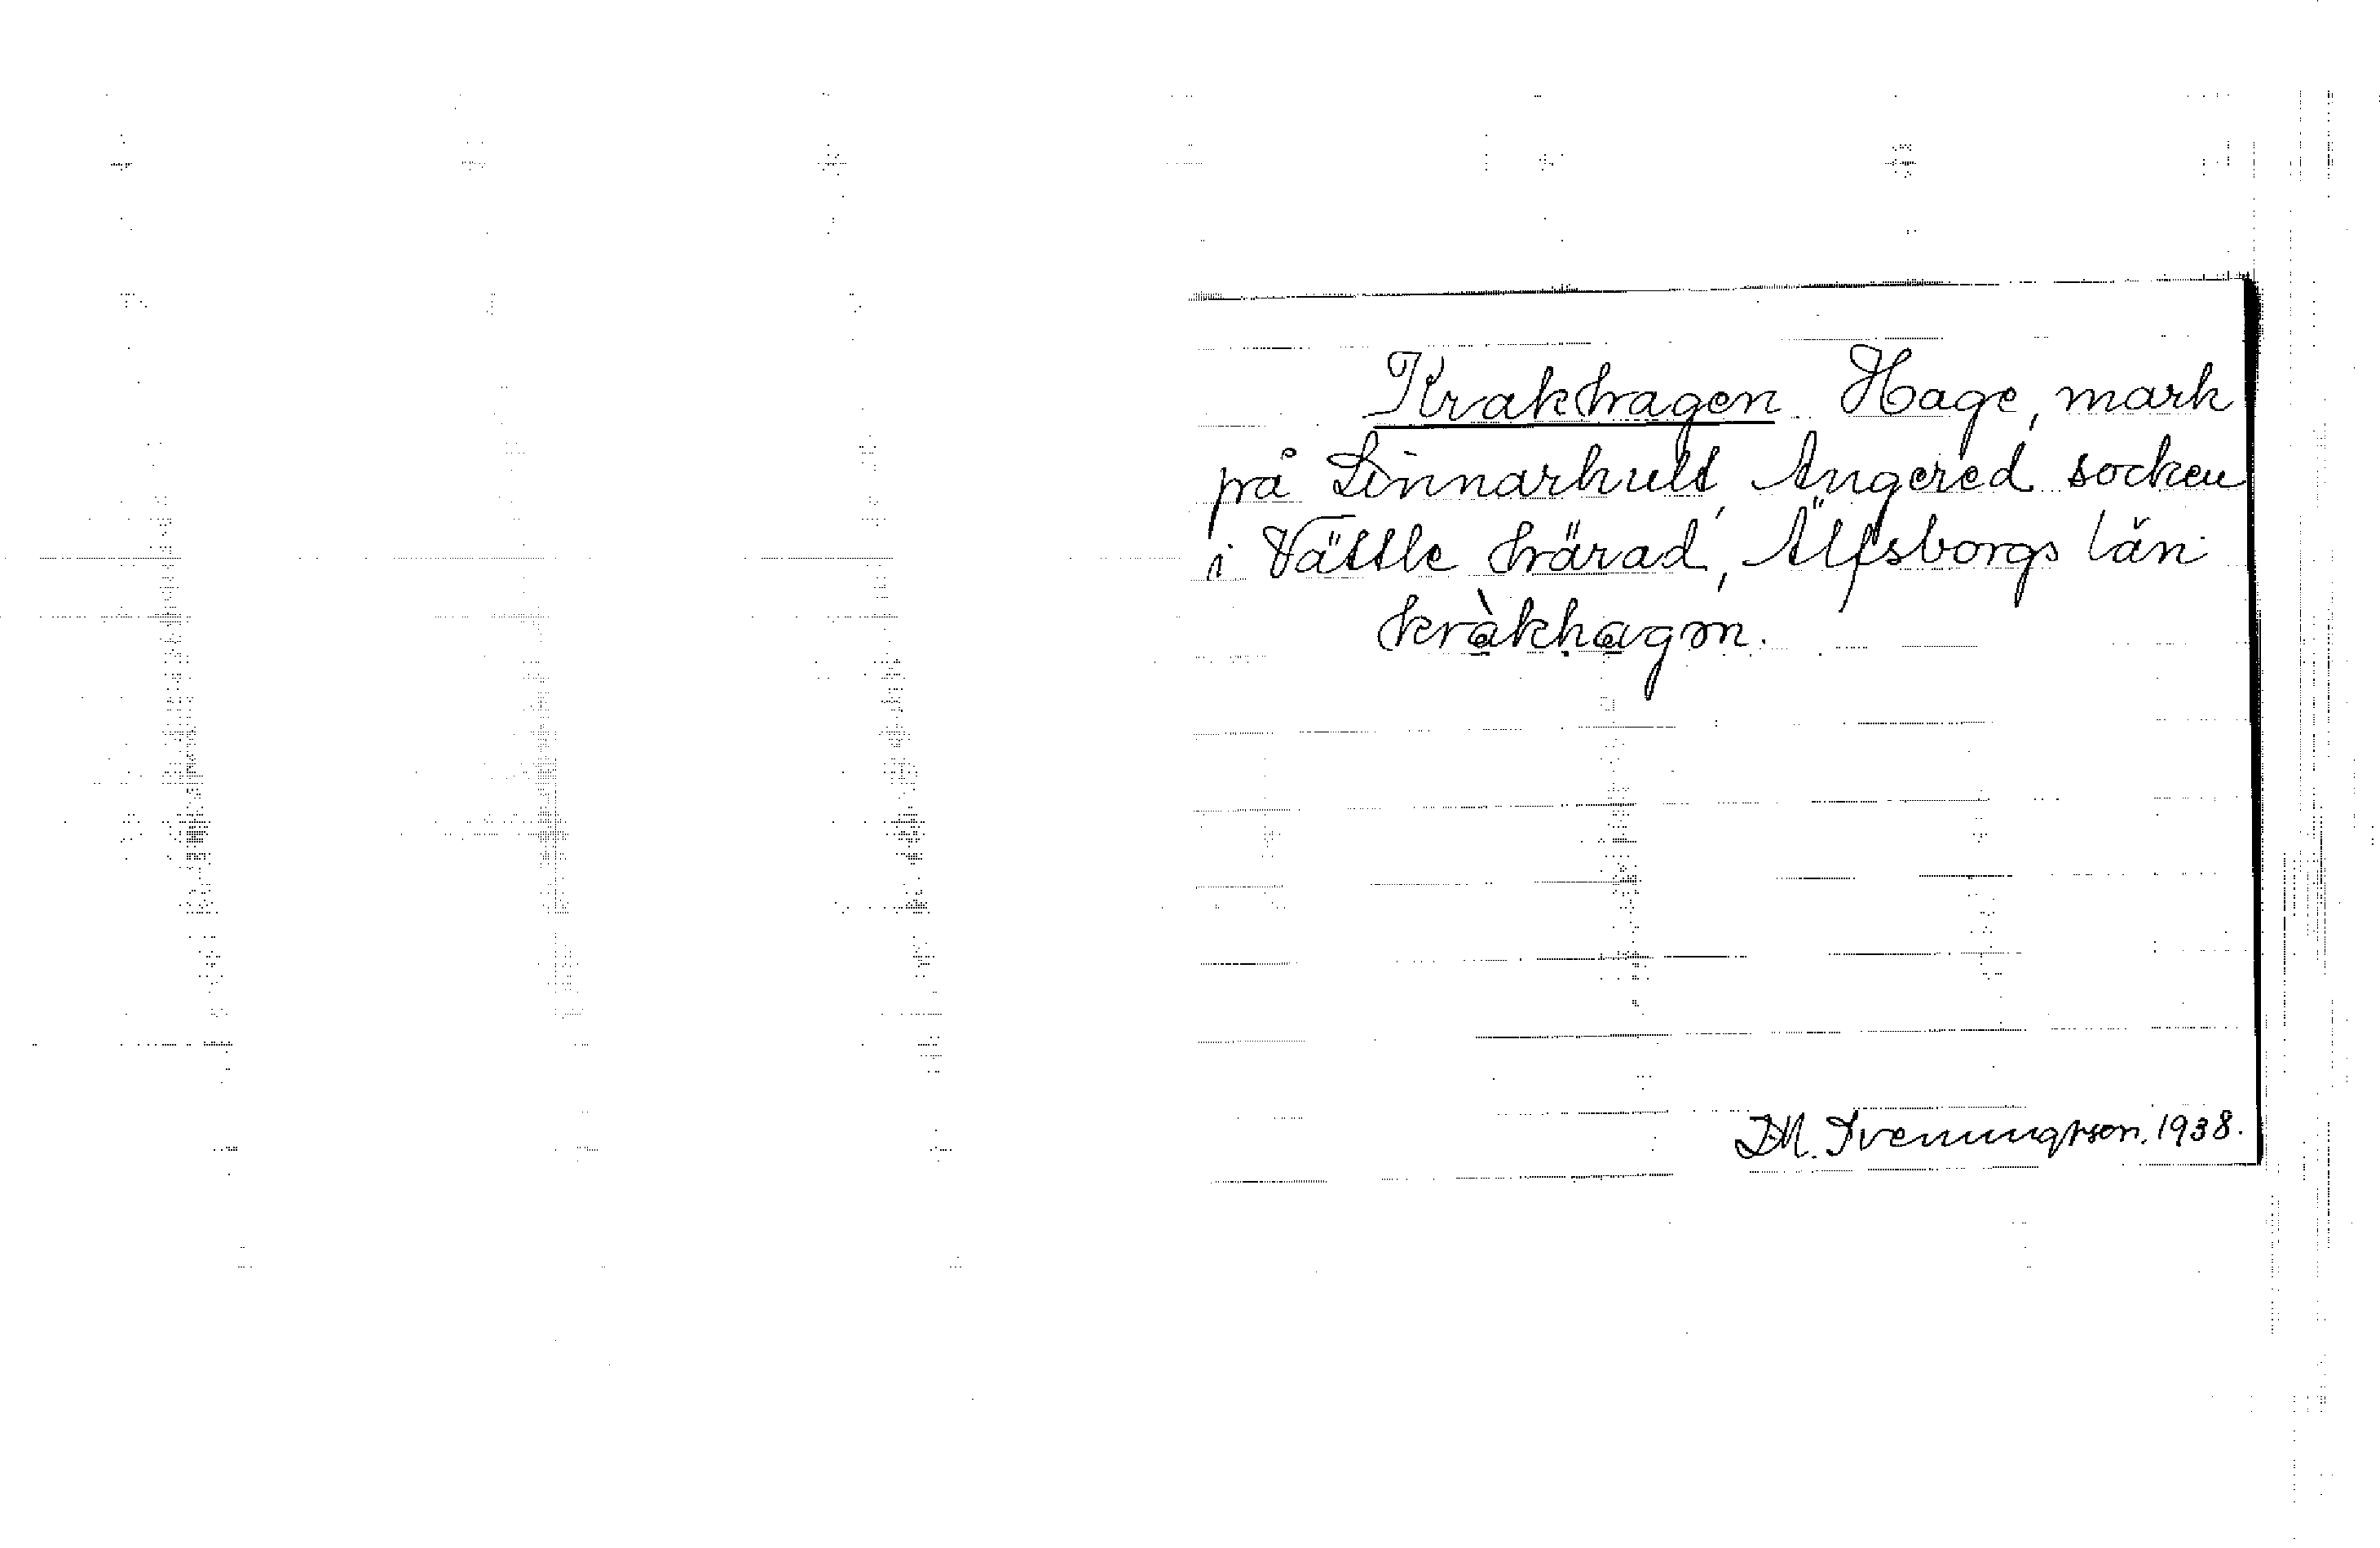 Krakhagen Hage, mark
på Linnarhult, Angered socken
i Vättle härad, Älfsborgs län
kràkhagen.
D.M. Svenungsson. 1938.